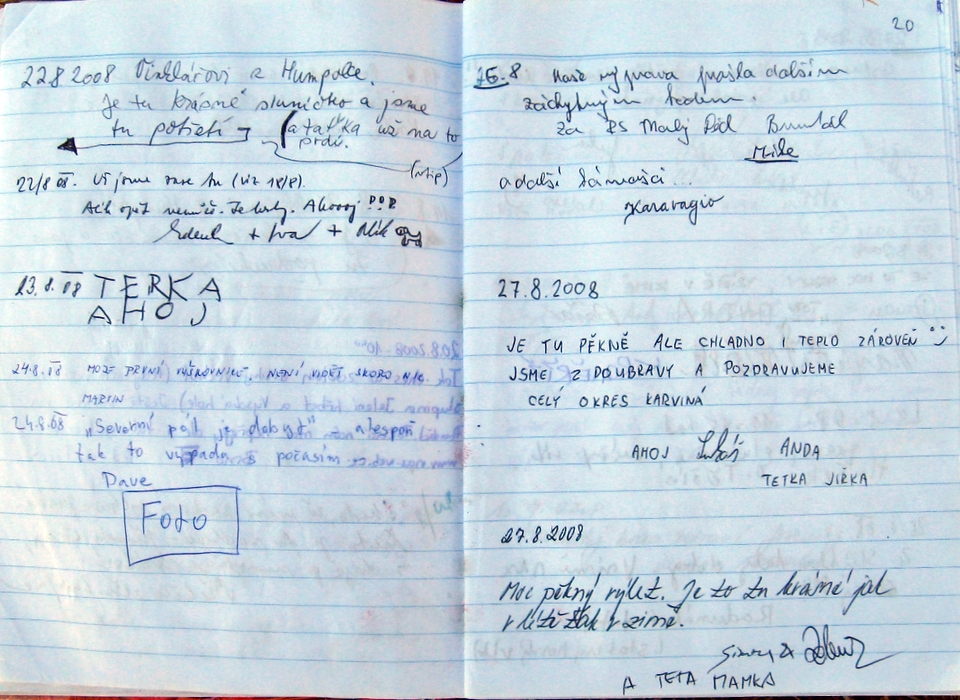 22.8.2008 Vinklárovi z Humpolce.
Je tu krásné sluníčko a jsme
tu potřetí
a taťka už na to
prdí.
(vtip)
22/8 08. Už jsme zase tu (viz 18/8).
Alík opět nemůže. Je Ahooj !!!
Zdeněk + Iva + Alík
23.8.08 TERKA
AHOJ
24.8.08 MOZE PRVNÍ, NENÍ VIDĚT SKORO NIC.
MARTIN
24.8.08 „Severní pól je dobyt" alespoň
tak to vypadá s počasím
Dave
Foto
20
26.8 Naše výprava prošla dalším
záchytným bodem.
Za PS Malý Děd Bruntál
Mike
a další členové...
Karavagio
27.8.2008
JE TU PĚKNĚ ALE CHLADNO I TEPLO ZÁROVEŇ
JSME Z DOUBRAVY A POZDRAVUJEME
CELÝ OKRES KARVINÁ
AHOJ Lukáš ANDA
TETKA JIŘKA
27.8.2008
Moc pěkný výlet. Je to tu krásné jak
v létě tak v zimě.
A TETA MAMKA